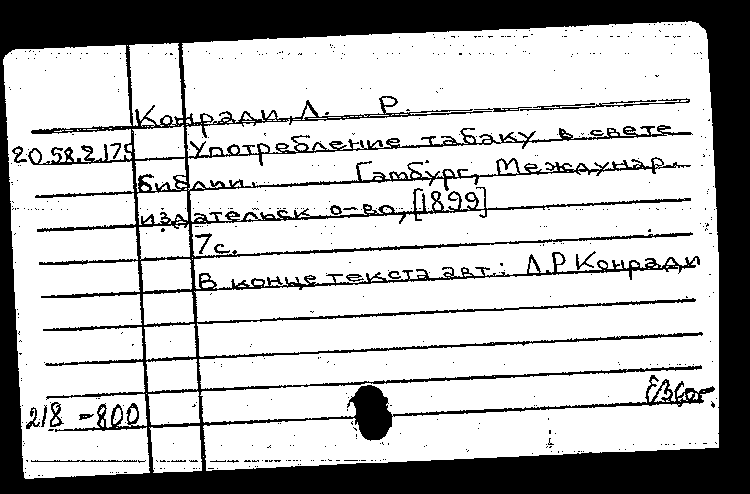 Конради, Л. Р.
20.58.2.175 Употребление табаку в свете
библии. Гамбург, Междунар.
издательск о-во, [1899]
7 с.
В конце текста авт.: Л.Р Конради
218-800